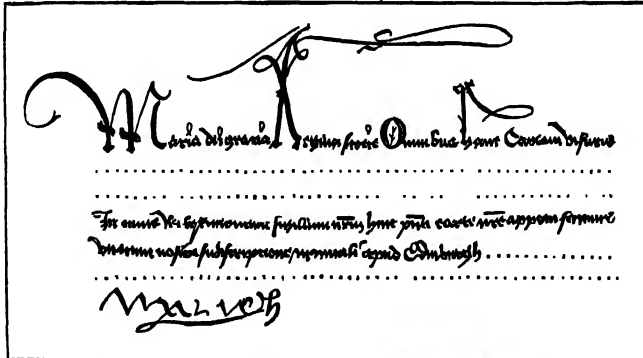 Maria dei gracia Regina Omnibus hanc Cartam visuris
In cuius Rei testimonium sigillum nrm huic pnti carte nre apponi fecimus
vnacum nostra subscriptione manuali apud Edinburgh